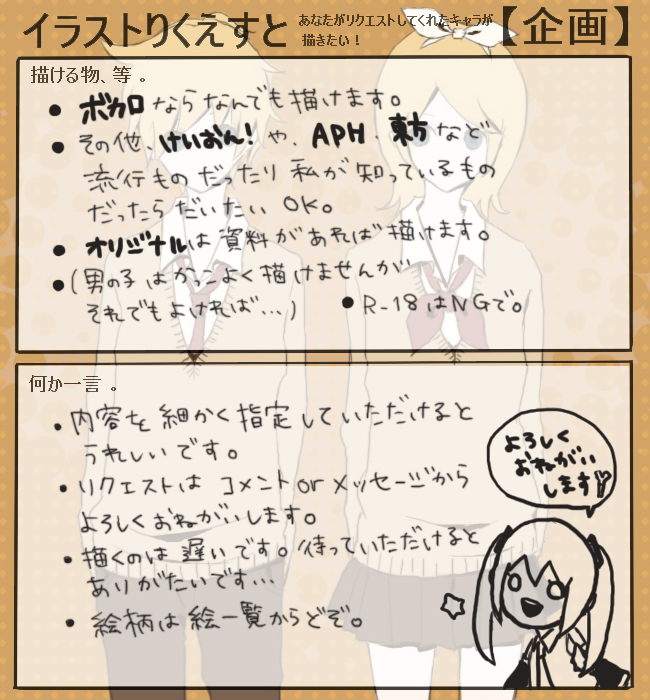 イラストりくえすと
あなたがリクエストしてくれたキャラが
描きたい！
【企画】
描ける物、等 。
● ボカロならなんでも描けます。
● その他、けいおん！や、APH、東方など
流行ものだったり私が知っているもの
だったらだいたいOK。
● オリジナルは資料があれば描けます。
● (男の子はかっこよく描けませんが
それでもよければ…)
● R-18はNGで。
何か一言 。
・内容を細かく指定していただけると
うれしいです。
・リクエストはコメントorメッセージから
よろしくおねがいします。
・描くのは遅いです。待っていただけると
ありがたいです…
・絵柄は絵一覧からどぞ。
よろしく
おねがい
します!!